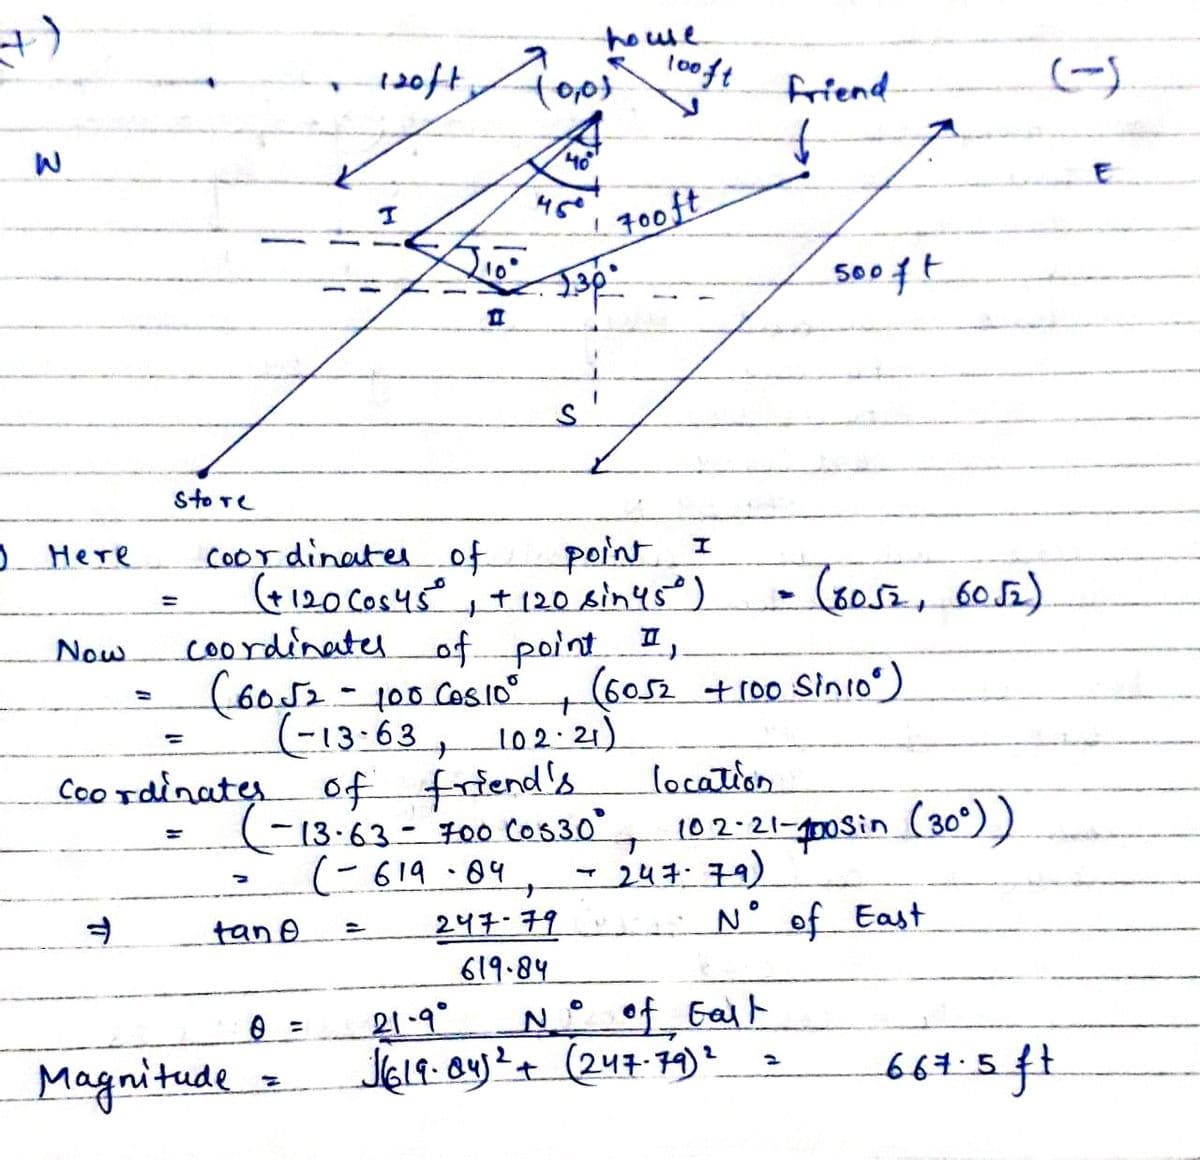 +)
house
120ft
100ft
(0,0)
friend
(-)
W
40°
E
I
45°
700ft
10°
30°
500ft
II
S
store
Here coordinates of point I
= (+120 cos45°, +120 sin45°) = (60√2, 60√2)
Now coordinates of point II,
= (60√2 - 100 cos10°, (60√2 +100 sin10°)
= (-13.63, 102.21)
Coordinates of friend's location
= (-13.63 - 700 cos30°, 102.21-700sin (30°))
= (-619.84, -247.79)
⇒ tanθ = 247.79 N° of East
619.84
θ = 21.9° N° of East
Magnitude = √(619.84)² + (247.79)² = 667.5 ft